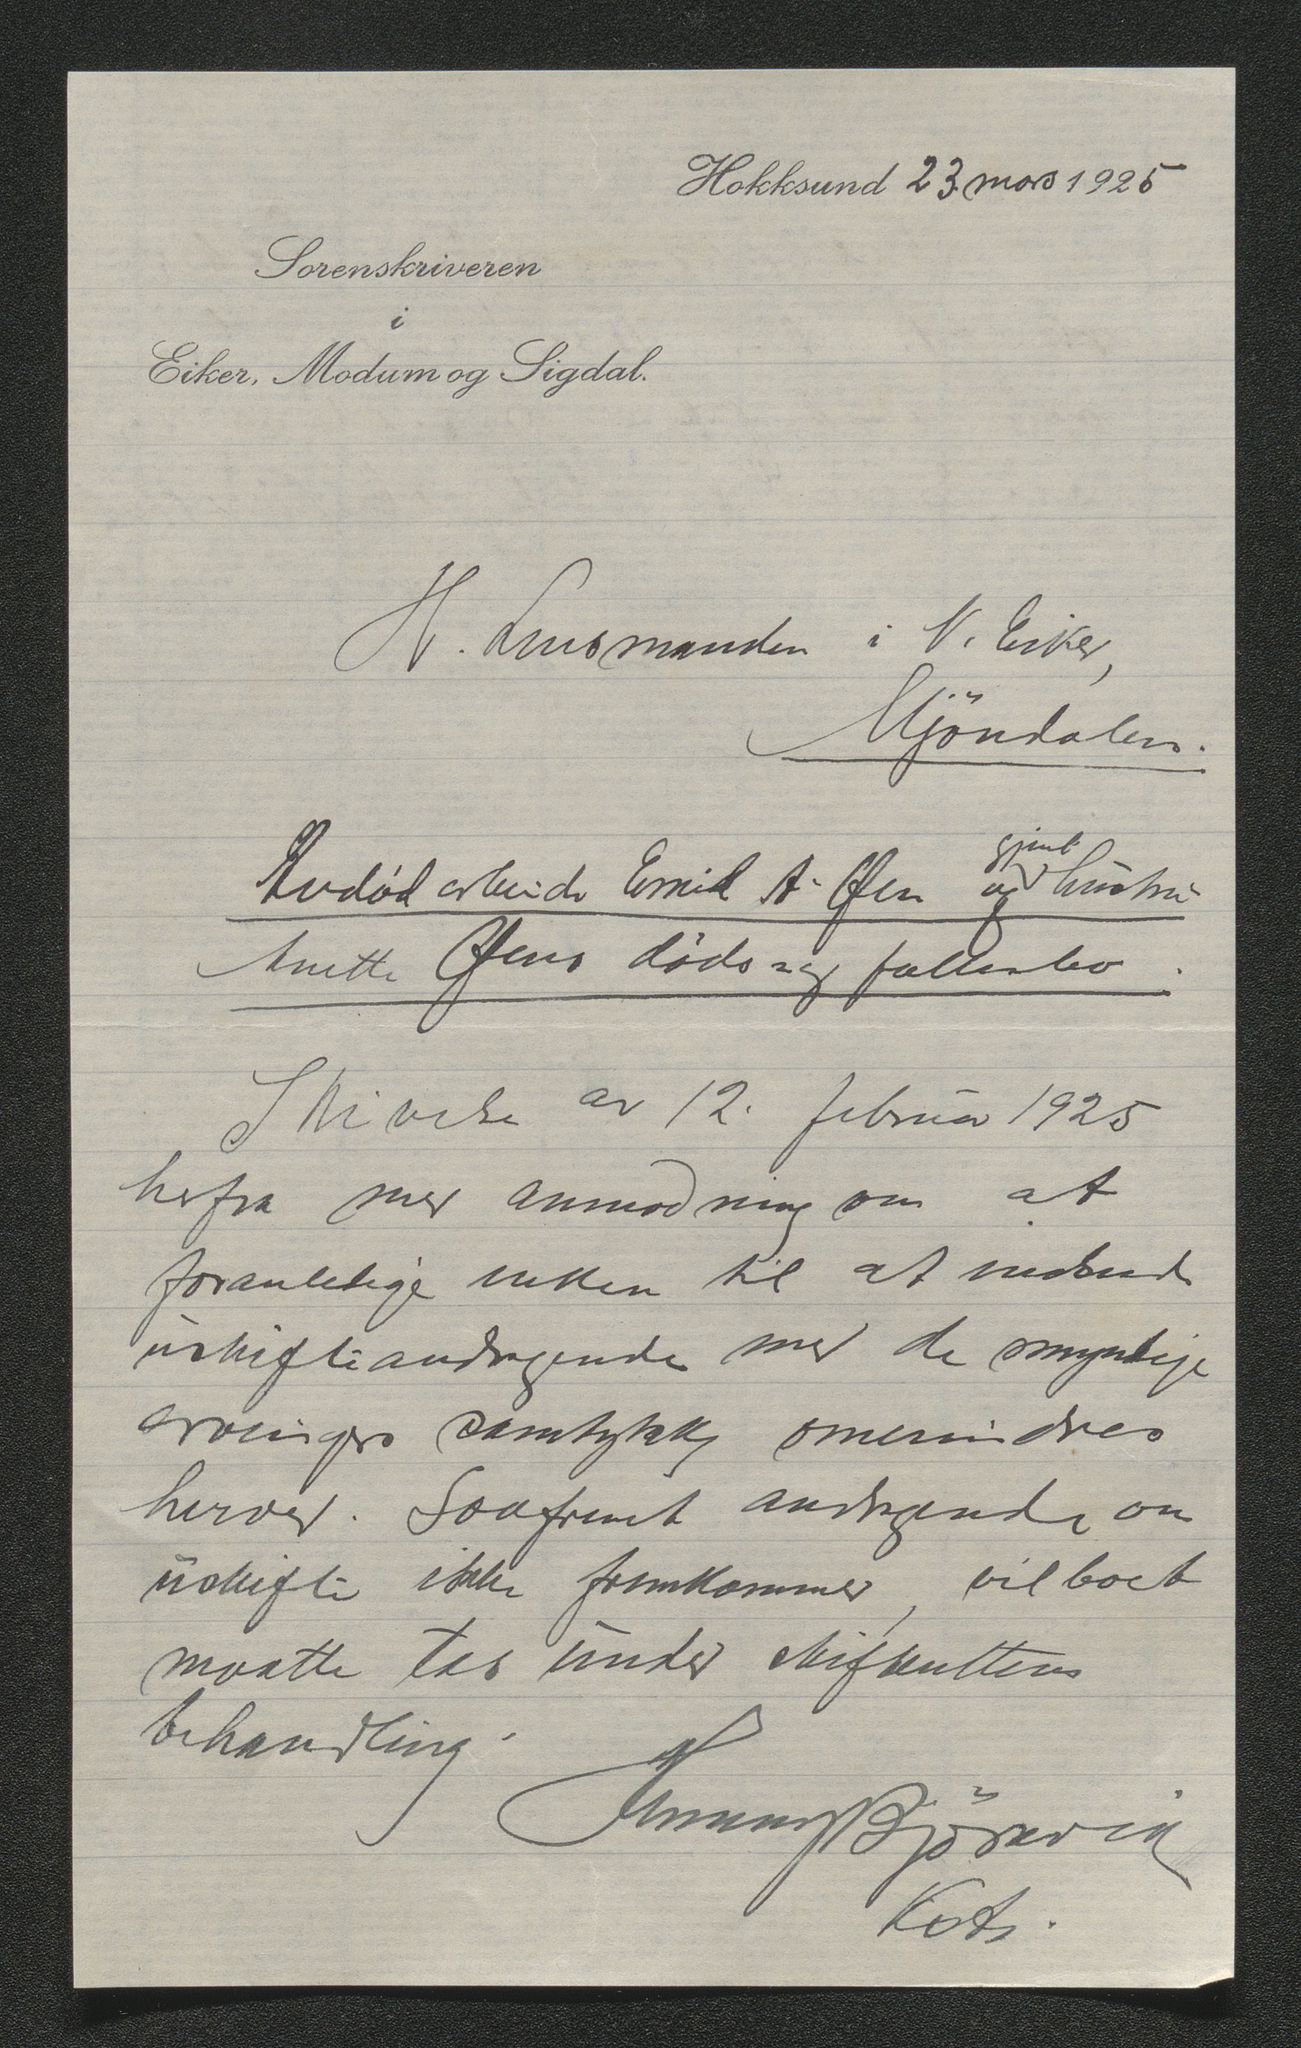 Hokksund 23 mars 1925
Sorenskriveren
i
Eiker, Modum og Sigdal.
H. Lensmanden i N. Eiker,
Mjöndalen.
gjenl
Avdød arbeider Emil A. Øen og hustru
Anette Øens døds og fællesbo.
Skrivelse av 12. februar 1925
herfra med anmodning om at
foranledige enken til at indsende
uskifteandragende med de myndige
arvingers samtykke omerindres
herved. Saafremt andragende om
uskifte ikke fremkommer, vil boet
maatte tas under skifterettens
behandling.
Björnvik